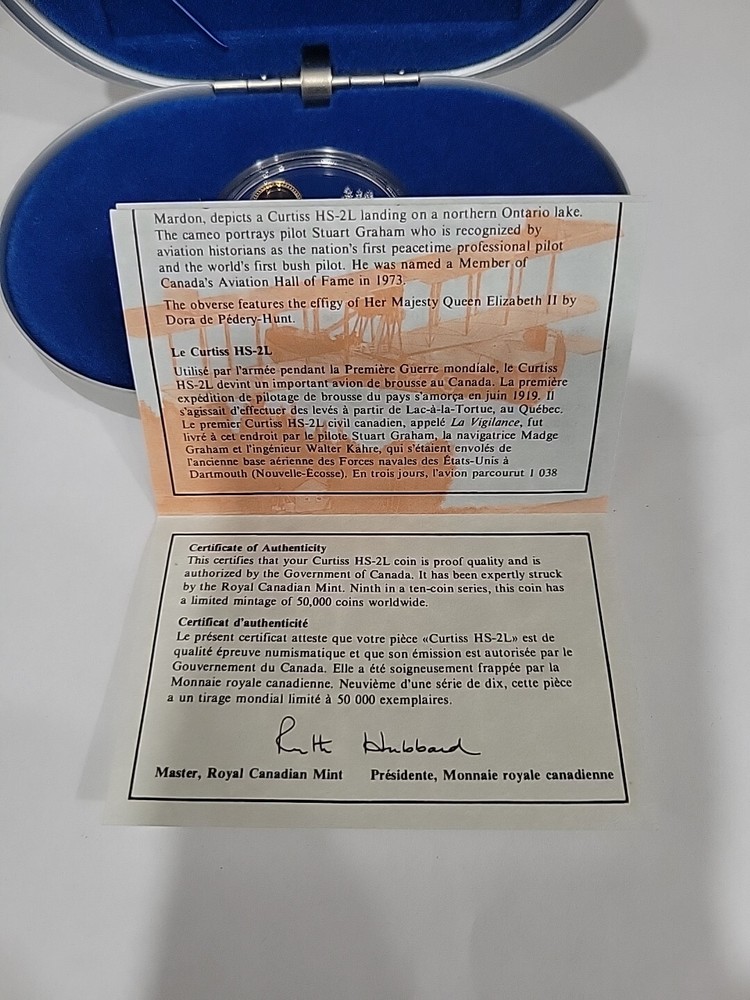 Mardon, depicts a Curtiss HS-2L landing on a northern Ontario lake.
The cameo portrays pilot Stuart Graham who is recognized by
aviation historians as the nation's first peacetime professional pilot
and the world's first bush pilot. He was named a Member of
Canada's Aviation Hall of Fame in 1973.
The obverse features the effigy of Her Majesty Queen Elizabeth II by
Dora de Pédery-Hunt.
Le Curtiss HS-2L
Utilisé par l'armée pendant la Première Guerre mondiale, le Curtiss
HS-2L devint un important avion de brousse au Canada. La première
expédition de pilotage de brousse du pays s'amorça en juin 1919. Il
s'agissait d'effectuer des levés à partir de Lac-à-la-Tortue, au Québec.
Le premier Curtiss HS-2L civil canadien, appelé La Vigilance, fut
livré à cet endroit par le pilote Stuart Graham, la navigatrice Madge
Graham et l'ingénieur Walter Kahre, qui s'étaient envolés de
l'ancienne base aérienne des Forces navales des États-Unis à
Dartmouth (Nouvelle-Écosse). En trois jours, l'avion parcourut 1 038
Certificate of Authenticity
This certifies that your Curtiss HS-2L coin is proof quality and is
authorized by the Government of Canada. It has been expertly struck
by the Royal Canadian Mint. Ninth in a ten-coin series, this coin has
a limited mintage of 50,000 coins worldwide.
Certificat d'authenticité
Le présent certificat atteste que votre pièce «Curtiss HS-2L» est de
qualité épreuve numismatique et que son émission est autorisée par le
Gouvernement du Canada. Elle a été soigneusement frappée par la
Monnaie royale canadienne. Neuvième d'une série de dix, cette pièce
a un tirage mondial limité à 50 000 exemplaires.
Ruth Hubbard
Master, Royal Canadian Mint Présidente, Monnaie royale canadienne